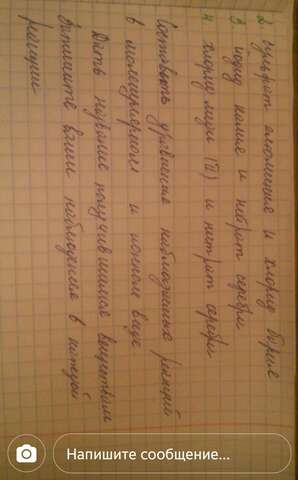 2 сульфат алюминия и хлорид бария
3 иодид калия и нитрат серебра
4 хлорид меди (II) и нитрат серебра
Составить уравнение наблюдаемые реакций
в молекулярном и ионном виде
Дать название получившимся веществам
Запишите ваши наблюдения в каждой
реакции
Напишите сообщение...